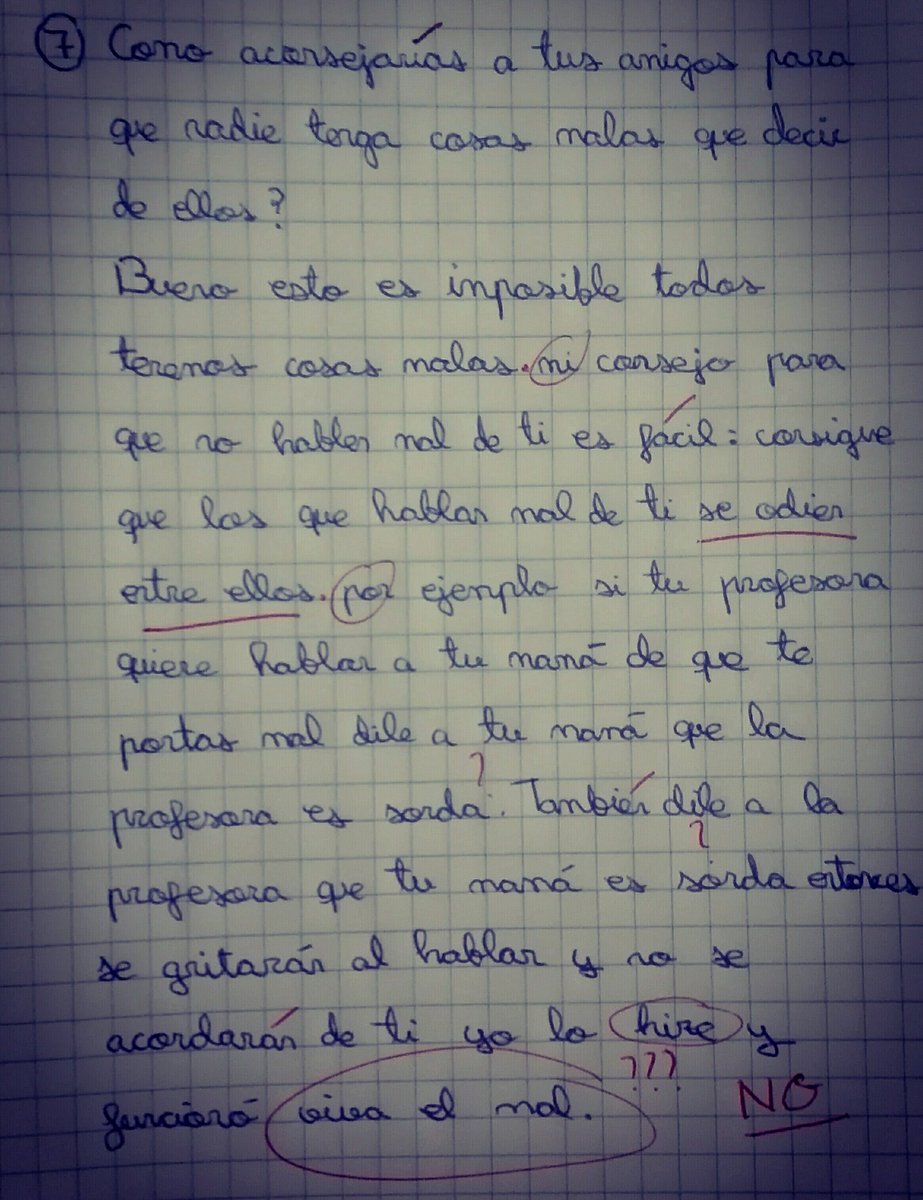 ⑦ Como aconsejarías a tus amigos para
que nadie tenga cosas malas que decir
de ellos?
Bueno esto es inposible todos
tenemos cosas malas. mi consejo para
que no hablen mal de ti es fácil: consigue
que los que hablan mal de ti se odien
entre ellos. por ejemplo si tu profesora
quiere hablar a tu mamá de que te
portas mal dile a tu mamá que la
?
profesora es sorda. También dile a la
?
profesora que tu mamá es sorda entonces
se gritarán al hablar y no se
acordarán de ti yo lo hize y
???
funcionó viva el mal.
NO